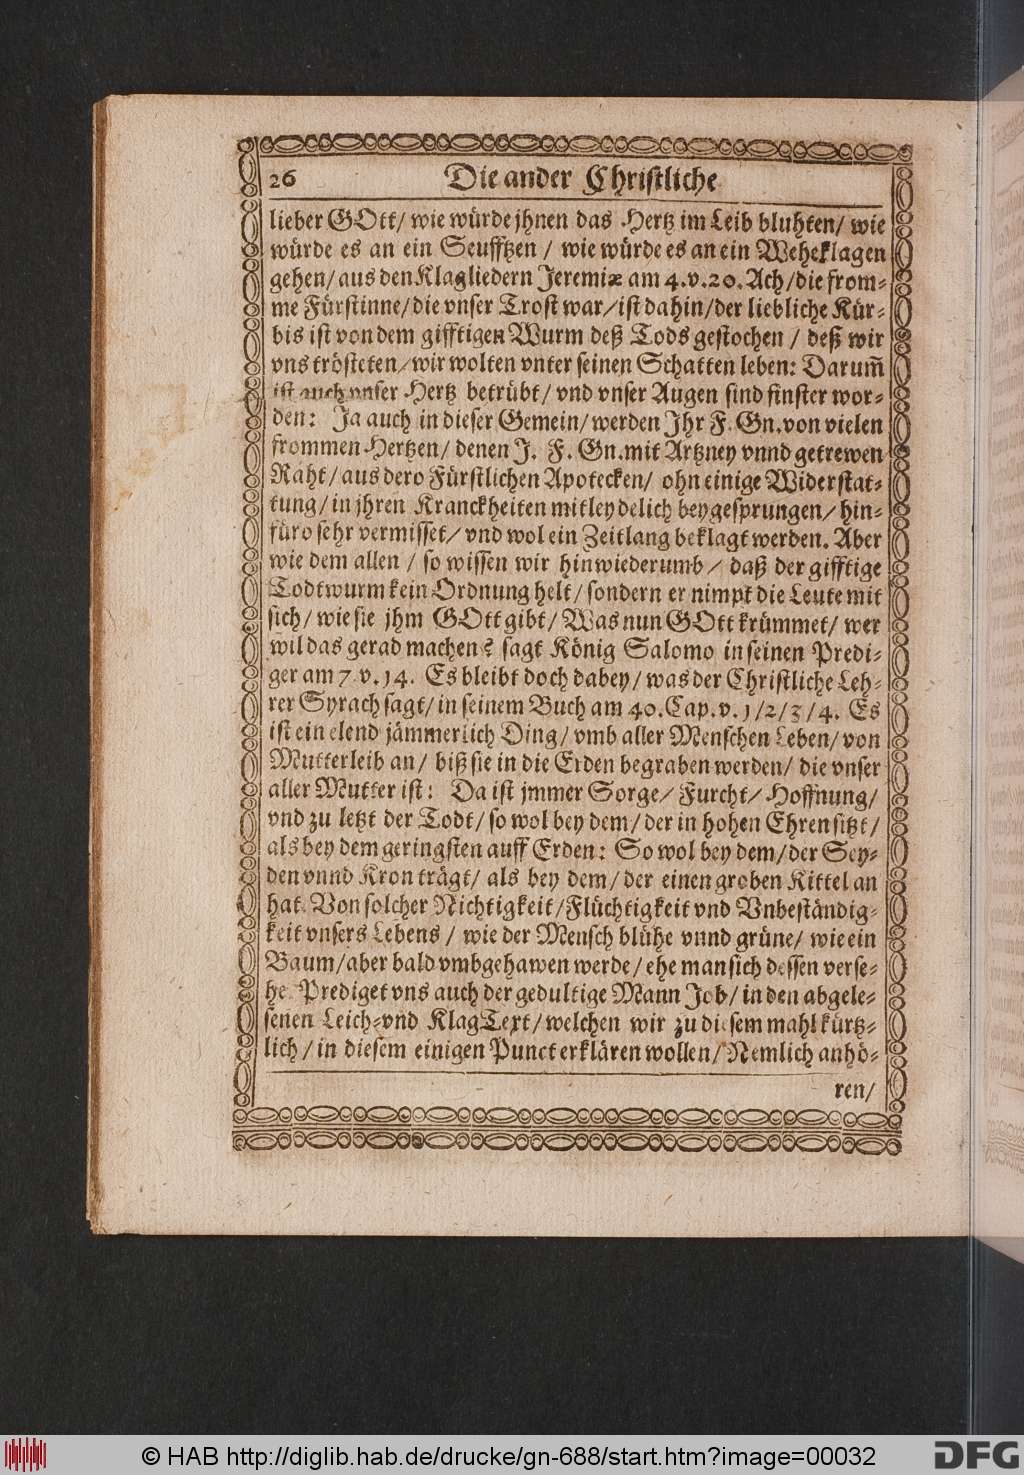 26 Die ander Christliche
lieber GOtt/ wie würde jhnen das Hertz im Leib bluhten/ wie
würde es an ein Seufftzen / wie würde es an ein Weheklagen
gehen/ aus den Klagliedern Jeremiæ am 4. v. 20. Ach/ die from-
me Fürstinne/ die vnser Trost war/ ist dahin/ der liebliche Kür-
bis ist von dem gifftigen Wurm deß Tods gestochen / deß wir
vns trösteten/ wir wolten vnter seinen Schatten leben: Darum̃
ist auch vnser Hertz betrübt/ vnd vnser Augen sind finster wor-
den: Ja auch in dieser Gemein/ werden Ihr F. Gn. von vielen
frommen Hertzen/ denen J. F. Gn. mit Artzney vnnd getrewen
Raht/ aus dero Fürstlichen Apotecken/ ohn einige Widerstat-
tung/ in jhren Kranckheiten mitleydelich beygesprungen/ hin-
füro sehr vermisset/ vnd wol ein Zeitlang beklagt werden. Aber
wie dem allen / so wissen wir hinwiederumb/ daß der gifftige
Todtwurm kein Ordnung helt/ sondern er nimpt die Leute mit
sich/ wie sie jhm GOtt gibt/ Was nun GOtt krümmet/ wer
wil das gerad machen? sagt König Salomo in seinen Predi-
ger am 7. v. 14. Es bleibt doch dabey/ was der Christliche Leh-
rer Syrach sagt/ in seinem Buch am 40. Cap. v. 1/2/3/4. Es
ist ein elend jämmerlich Ding/ vmb aller Menschen Leben/ von
Mutterleib an/ biß sie in die Erden begraben werden/ die vnser
aller Mutter ist: Da ist jmmer Sorge/ Furcht/ Hoffnung/
vnd zu letzt der Todt/ so wol bey dem/ der in hohen Ehren sitzt/
als bey dem geringsten auff Erden: So wol bey dem/ der Sey-
den vnnd Kron trägt/ als bey dem/ der einen groben Kittel an
hat. Von solcher Nichtigkeit/ Flüchtigkeit vnd Vnbeständig-
keit vnsers Lebens / wie der Mensch blühe vnnd grüne/ wie ein
Baum/ aber bald vmbgehawen werde/ ehe man sich dessen verse-
he. Prediget vns auch der gedultige Mann Job/ in den abgele-
senen Leich- vnd KlagText/ welchen wir zu diesem mahl kürtz-
lich/ in diesem einigen Punct erklären wollen/ Nemlich anhö-
ren/
© HAB http://diglib.hab.de/drucke/gn-688/start.htm?image=00032
DFG